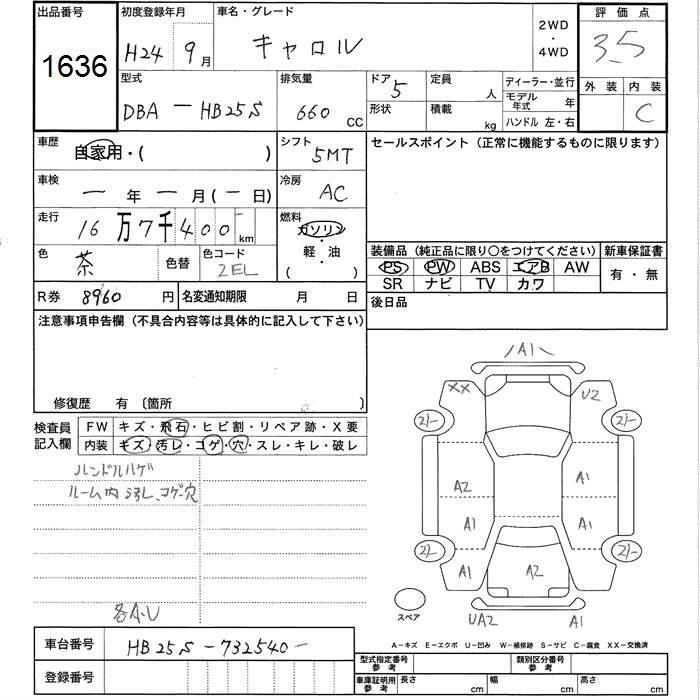 出品番号 初度登録年月 車名・グレード 2WD ・ 4WD 評価点
1636 H24 9月 キャロル 3.5
型式 排気量 ドア 5 定員 人 ディーラー・並行 外装 内装
DBA - HB25S 660 CC 形状 積載 kg モデル年式 年 C
ハンドル 左・右
車歴 自家用・( ) シフト 5MT セールスポイント (正常に機能するものに限ります)
車検 ー 年 ー 月 (ー 日) 冷房 AC
走行 16万7千400 km 燃料 ガソリン
軽・油
( )
色 茶 色替 色コード 2EL
装備品 (純正品に限り○をつけてください) 新車保証書
PS PW ABS エアB AW 有・無
SR ナビ TV カワ
R券 8960 円 名変通知期限 月 日 後日品
注意事項申告欄 (不具合内容等は具体的に記入して下さい)
修復歴 有 〔箇所 〕
検査員記入欄 FW キズ・飛石・ヒビ割・リペア跡・X要
内装 キズ・汚レ・コゲ・穴・スレ・キレ・破レ
ハンドルハゲ
ルーム内汚レ、コゲ穴
各A.U
A1
XX U2
A2 A1
A1 A1
A1 A2
UA2 A1
スペア
A−キズ E−エクボ U−凹み W−補修跡 S−サビ C−腐食 XX−交換済
車台番号 HB25S-732540-
登録番号
型式指定番号 参考 類別区分番号 参考
車庫証明用 参考 長さ cm 幅 cm 高さ cm